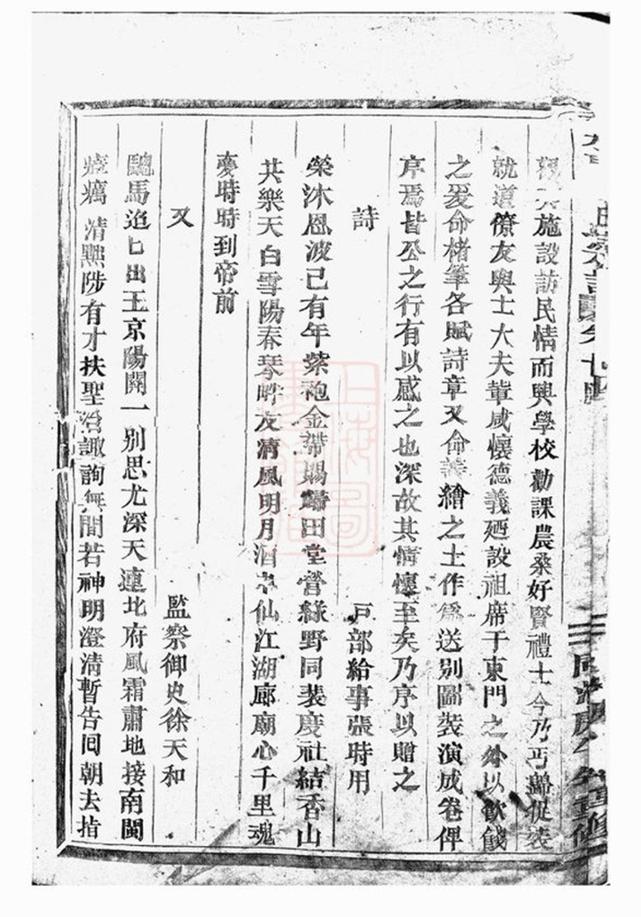 施設訪民情而興學校勸課農桑好賢禮士今乃丐歸促裝
就道僚友與士大夫輩咸懷德義廼設祖席于東門之外以飲餞
之爰命楮筆各賦詩章又命善繪之士作爲送別圖裝演成卷俾
序焉皆公之行有以感之也深故其情懷至矣乃序以贈之
詩 戶部給事張時用
榮沐恩波已有年紫袍金帶賜歸田堂營綠野同裴慶社結香山
共樂天白雪陽春琴畔友清風明月酒中仙江湖廊廟心千里魂
夢時時到帝前
又 監察御史徐天和
驄馬迢迢出玉京陽關一別思尤深天連北府風霜肅地接南閩
瘴癘清熙陟有才扶聖治諏詢無間若神明澄清暫告囘朝去指